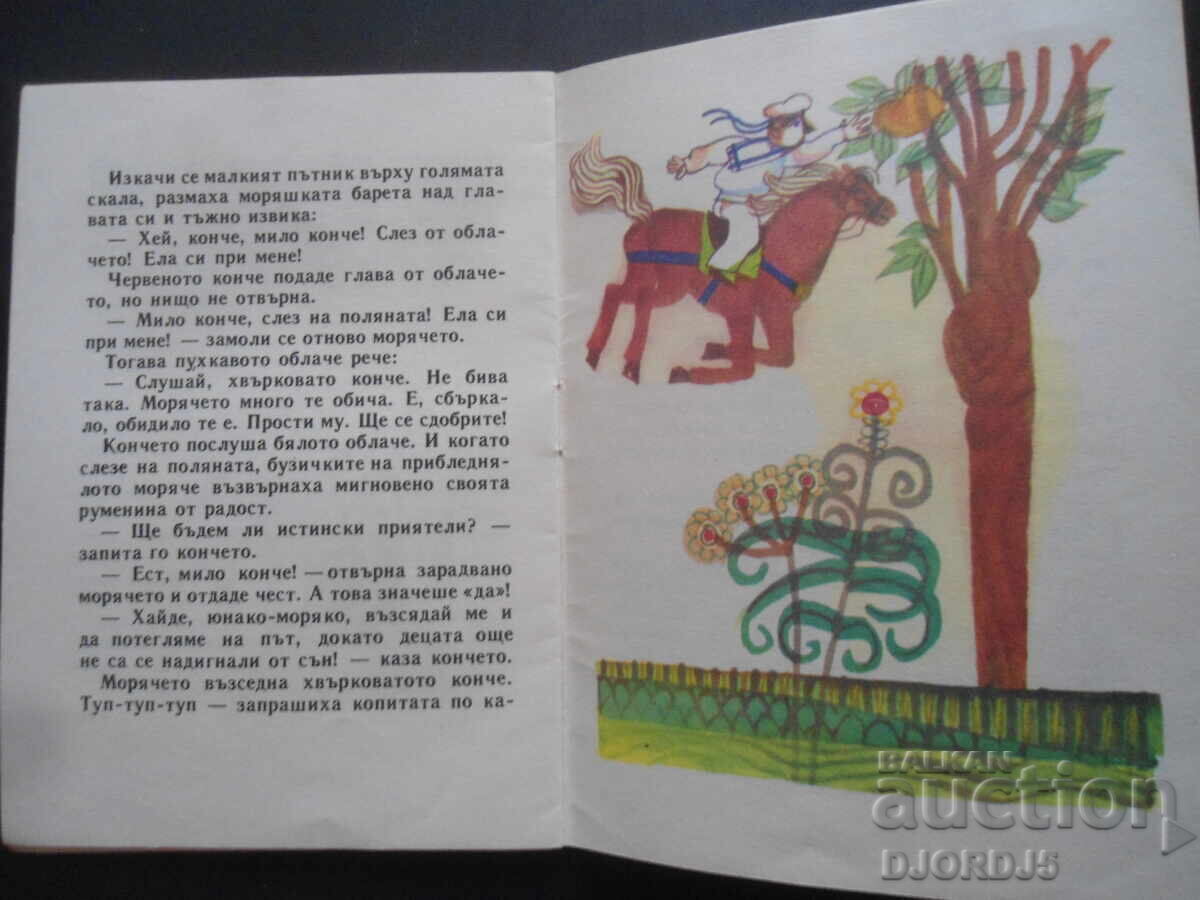 Изкачи се малкият пътник върху голямата
скала, размаха моряшката барета над гла-
вата си и тъжно извика:
— Хей, конче, мило конче! Слез от обла-
чето! Ела си при мене!
Червеното конче подаде глава от облаче-
то, но нищо не отвърна.
— Мило конче, слез на поляната! Ела си
при мене! — замоли се отново морячето.
Тогава пухкавото облаче рече:
— Слушай, хвърковато конче. Не бива
така. Морячето много те обича. Е, сбърка-
ло, обидило те е. Прости му. Ще се сдобрите!
Кончето послуша бялото облаче. И когато
слезе на поляната, бузичките на прибледня-
лото моряче възвърнаха мигновено своята
руменина от радост.
— Ще бъдем ли истински приятели? —
запита го кончето.
— Ест, мило конче! — отвърна зарадвано
морячето и отдаде чест. А това значеше «да»!
— Хайде, юнако-моряко, възсядай ме и
да потегляме на път, докато децата още
не са се надигнали от сън! — каза кончето.
Морячето възседна хвърковатото конче.
Туп-туп-туп — запрашиха копитата по ка-
BALKAN
auction
DJORDJ5